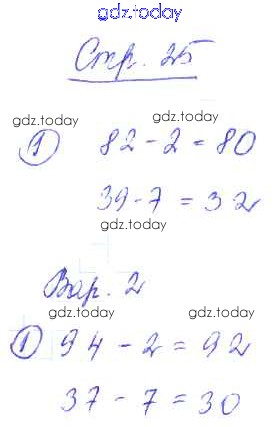 gdz.today
Стр. 25
gdz.today
① 82 - 2 = 80
gdz.today
39 - 7 = 32
gdz.today
Вар. 2
gdz.today
① 94 - 2 = 92
gdz.today
37 - 7 = 30